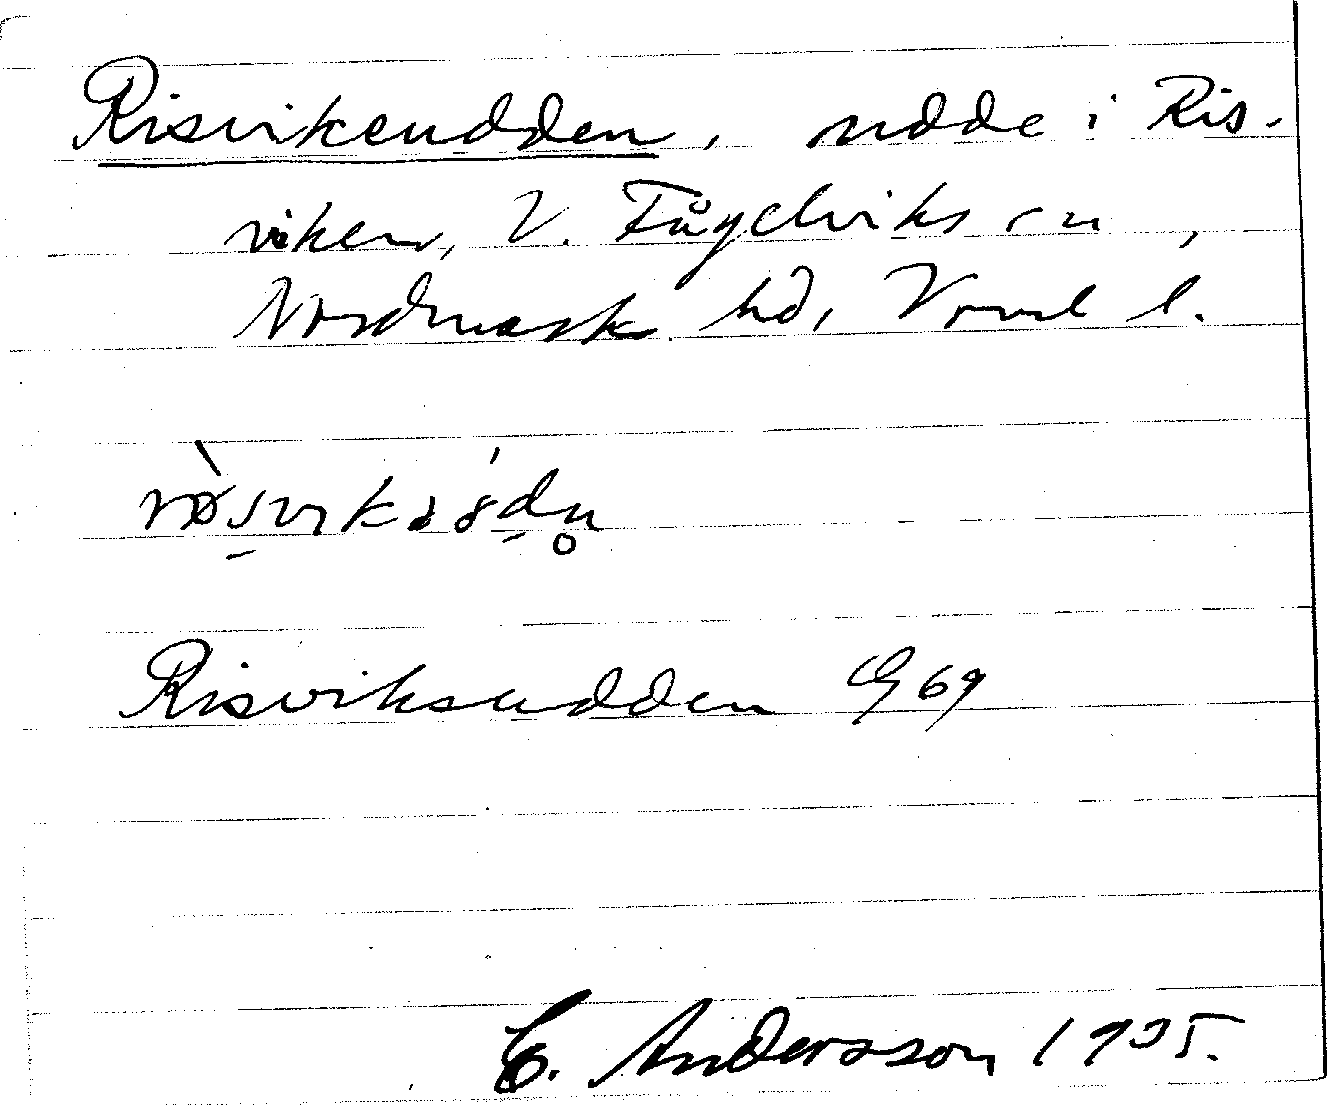 Risvikeudden, udde i Ris-
viken, V. Fågelviks sn,
Nordmark hd, Värml l.
Risviksudden G 69
E. Andersson 1935.